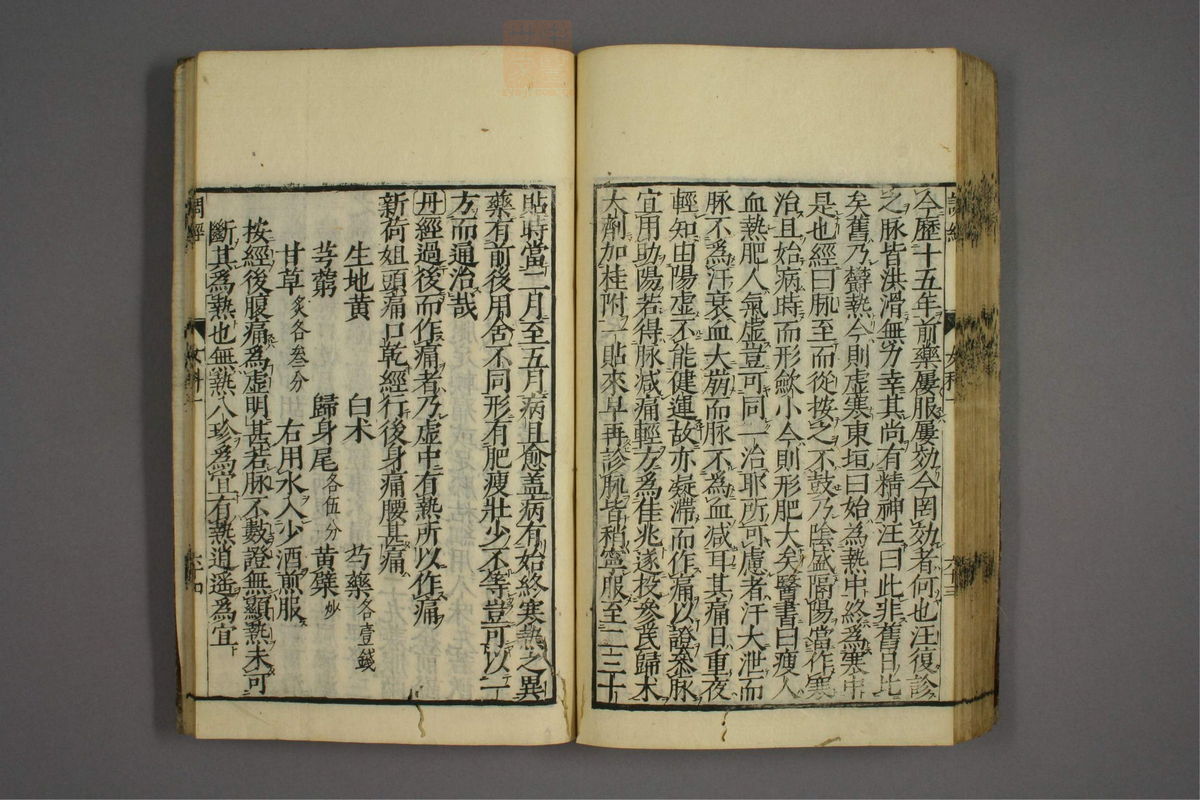 今歷十五年前藥屢服屢効今罔効者何也汪復診
之脉皆洪滑無力幸其尚有精神汪曰此非舊日比
矣舊乃欝熱今則虛寒東垣曰始為熱中終為寒中
是也經曰脉至而從按之不鼓乃陰盛隔陽當作寒
治且始病時而形歛小今則形肥大矣醫書曰瘦人
血熱肥人氣虛豈可同一治耶所可慮者汗大泄而
脉不為汗衰血大崩而脉不為血减耳其痛日重夜
輕知由陽虛不能健運故亦凝滯而作痛以證叅脉
宜用助陽若得脉减痛輕方為佳兆遂投參芪歸术
大劑加桂附一貼來早再診脉皆稍寧服至二三十
貼時當二月至五月病且愈盖病有始終寒熱之異
藥有前後用舍不同形有肥瘦壯少不等豈可以一
方而通治哉
丹經過後而作痛者乃虛中有熱所以作痛
新荷姐頭痛口乾經行後身痛腰甚痛
生地黄 白术 芍藥各壹錢
芎藭 歸身尾各伍分 黄檗炒
甘草炙各叁分 右用水入少酒煎服
按經後腹痛為虛明甚若脉不數證無顯熱未可
斷其為熱也無熱八珍為宜有熱逍遙為宜
調經 女科一 六十四